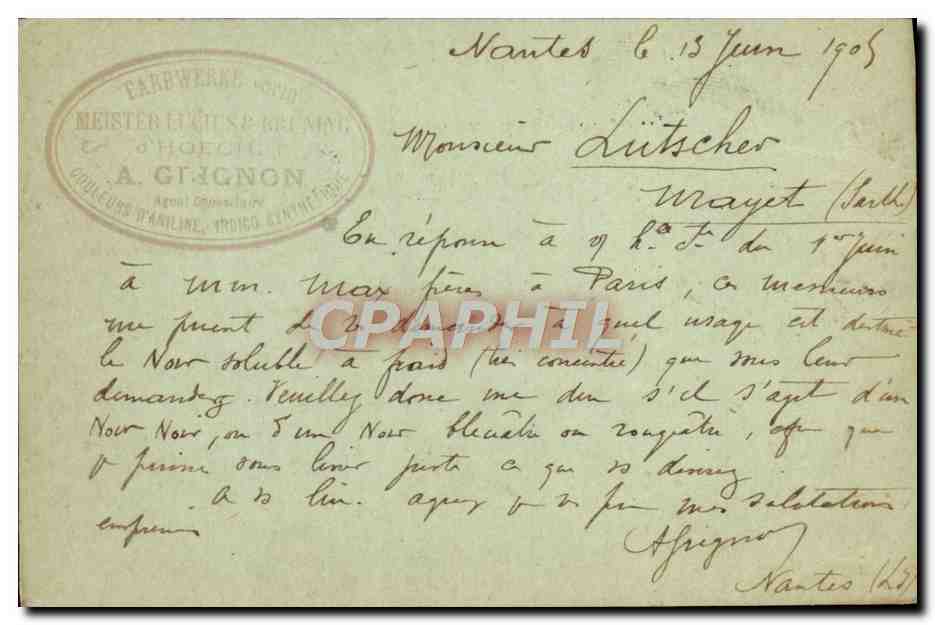 Nantes le 13 Juin 1905
FARBWERKE vorm
MEISTER LUCIUS & BRÜNING
à HOECHST
A. GRIGNON
Agent Dépositaire
COULEURS D'ANILINE, INDIGO SYNTHETIQUE
Monsieur Lütscher
Mayet (Sarthe)
En réponse à du 1er Juin
à MM. Max frères à Paris, ces messieurs
me prient de vs demander à quel usage est destiné
le Noir soluble à froid (très concentré) que vous leur
demandez. Veuillez donc me dire s'il s'agit d'un
Noir Noir, ou d'un Noir bleuâtre ou rougeâtre, afin que
je puisse vous livrer juste ce que vs désirez
A vs lire. agréez je vs prie mes salutations
empressées
AGrignon
Nantes (LI)
CPAPHIL